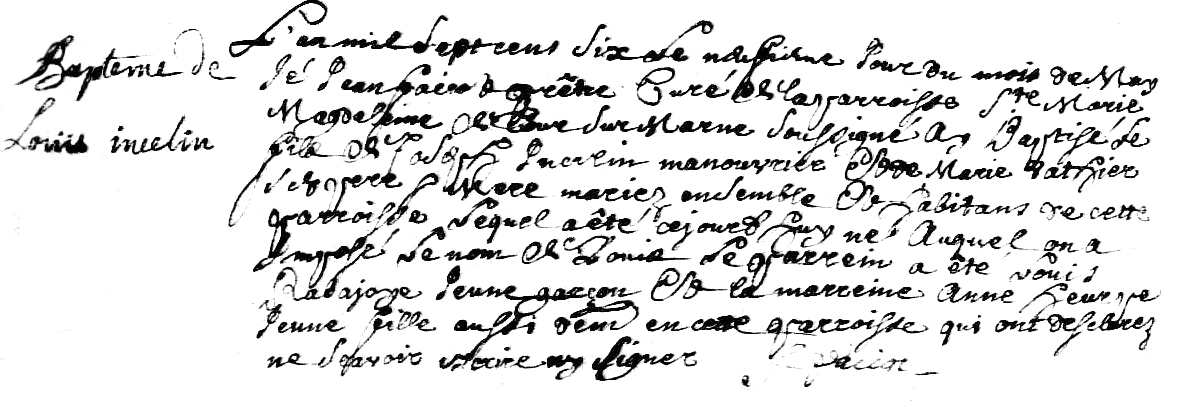 Bapteme de
Louis incelin
L'an mil sept cens six le Jour du mois de May
Jé Jean prêtre Curé de la parroisse Ste Marie
Magdeleine de sur Marne soussigné ay Baptisé le
fils de Joseph Incelin manouvrier et de Marie Vathier
ses pere et Mere mariez ensemble et habitans de cette
parroisse lequel a êté cejourdhuy né Auquel on a
Imposé le nom de Louis le parrein a êté Louis
Jeune garçon et la marreine Anne
Jeune fille aussi demt en cette parroisse qui ont desclarez
ne sçavoir escrire ny signer